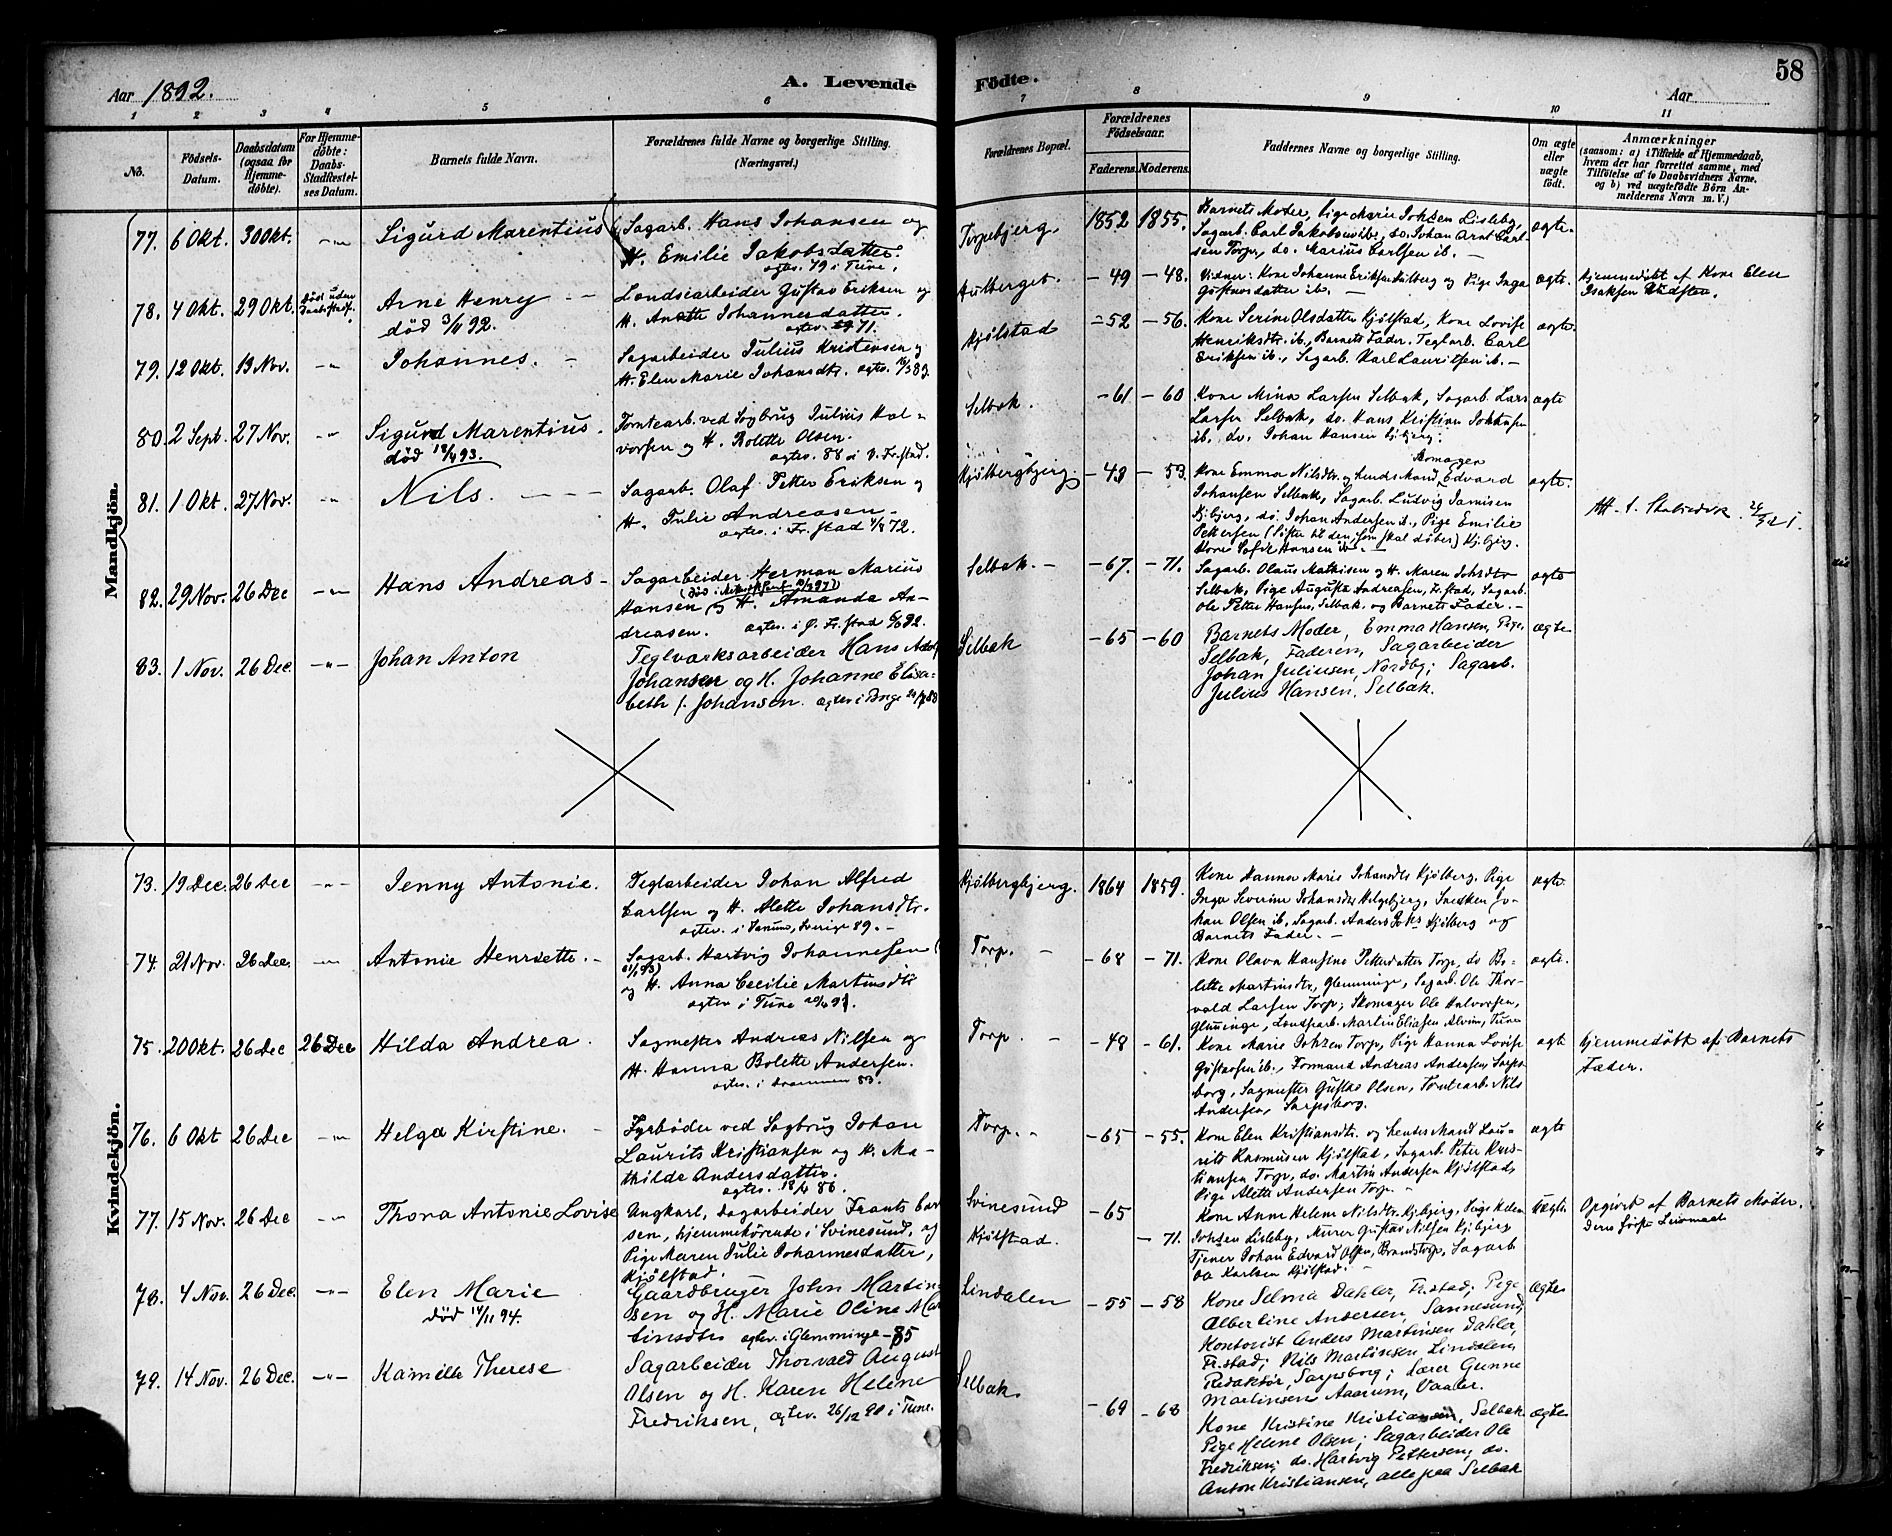 Aar 1892.
A. Levende
1 2 3 4 5 6
No.
Födsels-Datum.
Daabsdatum (ogsaa for Hjemmedöbte).
For Hjemmedöbte: Daabs-Stadfæstelses Datum.
Barnets fulde Navn.
Forældrenes fulde Navne og borgerlige Stilling.
(Næringsvei.)
Mandkjön.
77. 6 Okt. 30 Okt. -"- Sigurd Marentius
Sagarb. Hans Johansen og
H. Emilie Jakobsdatter.
agtev. 79 i Tune.
78. 4 Okt. 29 Okt. Död uden Daabsstadf. Arne Henry
död 3/11 92.
Londsearbeider Gustav Eriksen og
H. Anette Johannesdatter.
agtev. 71.
79. 12 Okt. 13 Nov. -"- Johannes.
Sagarbeider Julius Kristensen og
H. Elen Marie Johansdtr. agtev. 83.
80. 2 Sept. 27 Nov. -"- Sigurd Marentius.
död 18/4 93.
Tomtearb. ved Sagbrug Julius Hal-
vorsen og H. Bolette Olsen.
agtev. 88 i V. Fr.stad.
81. 1 Okt. 27 Nov. -"- Nils.
Sagarb. Olaf Petter Eriksen og
H. Julie Andreasen
agtev. i Fr.stad 72.
82. 29 Nov. 26 Dec -"- Hans Andreas
Sagarbeider Herman Marius
Hansen og H. Amanda An-
dreasen. agtev. i Ø. Fr.stad 92.
83. 1 Nov. 26 Dec. -"- Johan Anton
Teglværksarbeider Hans Adolf
Johansen og H. Johanne Elisa-
beth f. Johansen. agtev i Borge 88
Kvindekjön.
73. 19 Dec. 26 Dec -"- Jenny Antonie.
Teglarbeider Johan Alfred
Carlsen og H. Alette Johansdtr.
agtev. i Tanum, Sverige 89.
74. 21 Nov. 26 Dec. -"- Antonie Henriette.
Sagarb. Hartvig Johannesen
og H. Anna Cecilie Martinsdtr
agtev i Tune
75. 20 Okt. 26 Dec 26 Dec Hilda Andrea.
Sagmester Andreas Nilsen og
H. Hanna Bolette Andersen.
agtev. i Drammen 83.
76. 6 Okt 26 Dec -"- Helga Kirstine.
Fyrbøder ved Sagbrug Johan
Laurits Kristiansen og H. Ma-
thilde Andersdatter.
agtev. 86.
77. 15 Nov. 26 Dec -"- Thora Antonie Lovise
Ungkarl, Sagarbeider Frants Carl-
sen, hjemmehörende i Svinesund, og
Pige Maren Julie Johannesdatter,
Kjölstad.
78. 4 Nov. 26 Dec. -"- Elen Marie
död 14/11 94.
Gaardbruger John Martin-
sen og H. Marie Oline Mar-
tinsdtr agtev. i Glemminge -85
79. 14 Nov. 26 Dec. -"- Kamilla Therese
Sagarbeider Thorvald August
Olsen og H. Karen Helene
Fredriksen, agtev. 26/12 90 i Tune.
Födte.
58
Aar
7 8 9 10 11
Forældrenes Bopæl.
Forældrenes Födselsaar.
Faderens. Moderens.
Faddernes Navne og borgerlige Stilling.
Om ægte eller uægte födt.
Anmærkninger
(saasom: a) i Tilfælde af Hjemmedaab,
hvem der har forrettet samme, med
Tilföielse af to Daabsvidners Navne,
og b) ved uægtefödte Börn An-
melderens Navn m.V.)
Torpebjerg. 1852 1855.
Barnets Moder, Pige Marie Johsen Lisleby,
Sagarb. Carl Jakobsen ib., do. Johan Arnt Carl-
sen Torp, do. Marius Carlsen ib.
ægte.
Hulberget. -49 -48.
Vidner: Kone Johanne Eriksen Hulberg og Pige Inga
Gustavsdatter ib.
ægte.
Hjemmedöbt af Kone Elen
Isaksen
Kjølstad -52 -56.
Kone Serine Olsdatter Kjølstad, Kone Lovise
Henriksdtr. ib., Barnets Fader. Teglarb. Carl
Eriksen ib., Sagarb. Karl Lauritsen ib.
ægte.
Selbak. -61 -60
Kone Mina Larsen Selbak, Sagarb. Lars
Larsen Selbak, do. Hans Kristian Johansen
ib. do. Johan Hansen Kjbjerg.
ægte
Kjølbergbjerg. -48 -53.
Kone Emma Nilsdtr. og hendes Mand, Skomager Edvard
Johansen Selbak, Sagarb. Ludvig Jamisen
Kjbjerg, do. Johan Andersen ib., Pige Emilie
Pettersen (Søster til den, som skal döbes) Kjbjerg.
Kone Sofie Hansen ib.
ægte.
Selbak. -67. -71.
Sagarb. Olaus Mathisen og H. Maren Johsdtr
Selbak, Pige Augusta Andreasen, Fr.stad, Sagarb.
Ole Petter Hansen, Selbak. og Barnets Fader.
ægte
Selbak -65 -60
Barnets Moder, Emma Hansen, Pige,
Selbak, Faderen, Sagarbeider
Johan Juliusen, Nordby; Sagarb.
Julius Hansen, Selbak.
ægte
Kjølbergbjerg. 1864 1859.
Kone Hanna Marie Johansdtr Kjølberg. Pige
Inga Severine Johansdtr Helgebjerg, Snedker Jo-
han Olsen ib., Sagarb. Anders Kjølberg og
Barnets Fader.
ægte.
Torp. -68 -71.
Kone Olava Hansine Pettersdatter Torp, do Bo-
lette Martinsdtr, Glemminge, Sagarb. Ole Thor-
vald Larsen Torp; Skomager Ole Halvorsen,
Glminge, Londsarb. Martin Eliasen Alvim, Tune
ægte.
Torp. -48 -61.
Kone Marie Johsen Torp, Pige Hanna Lovise
Gustavsen ib., Formand Andreas Andersen Sarps-
borg, Sagmester Gustav Olsen, Tomtearb. Nils
Andersen, Sarpsborg.
ægte
Hjemmedöbt af Barnets
Fader.
Torp. -65 -55.
Kone Elen Kristiansdtr. og hendes Mand Lau-
rits Rasmusen Kjølstad, Sagarb. Peter Kris-
tiansen Torp, do. Martin Andersen Kjølstad,
Pige Alette Andersen Torp.
ægte
Svinesund
Kjølstad.
-65
-71.
Kone Anne Helene Nilsdtr. Kjbjerg, Pige Helene
Johsen Lisleby, Murer Gustav Nilsen Kjbjerg
Tjener Johan Edvard Olsen, Brandstorp, Sagarb.
Karlsen Kjølstad.
Uægte
Opgivet af Barnets Moder.
Dens første Leiermaal
Lindalen -55 -58
Kone Selma Dahler, Fr.stad; Pige
Albertine Andersen, Sannesund,
Kontorist Anders Martinsen Dahler,
Fr.stad; Nils Martinsen Lindalen,
Redaktør, Sarpsborg; Lærer Gunne
Martinsen Aaarum, Vaaler.
ægte
Selbak -69 -68
Kone Kristine Kristiansen, Selbak
Pige Helene Olsen; Sagarbeider Ole
Fredriksen; do. Hartvig Pettersen, do.
Anton Kristiansen, alle paa Selbak
ægte